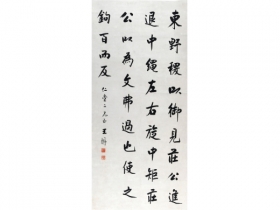 東野稷以御見莊公進
退中繩左右旋中矩莊
公以為文弗過也使之
鉤百而反
仁青二兄正 王